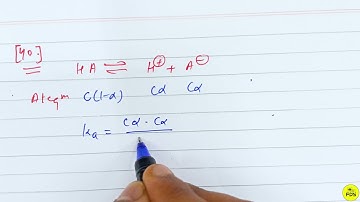 [40.]
HA ⇌ H⊕ + A⊖
At eqm C(1-α) Cα Cα
ka = Cα · Cα
PDS